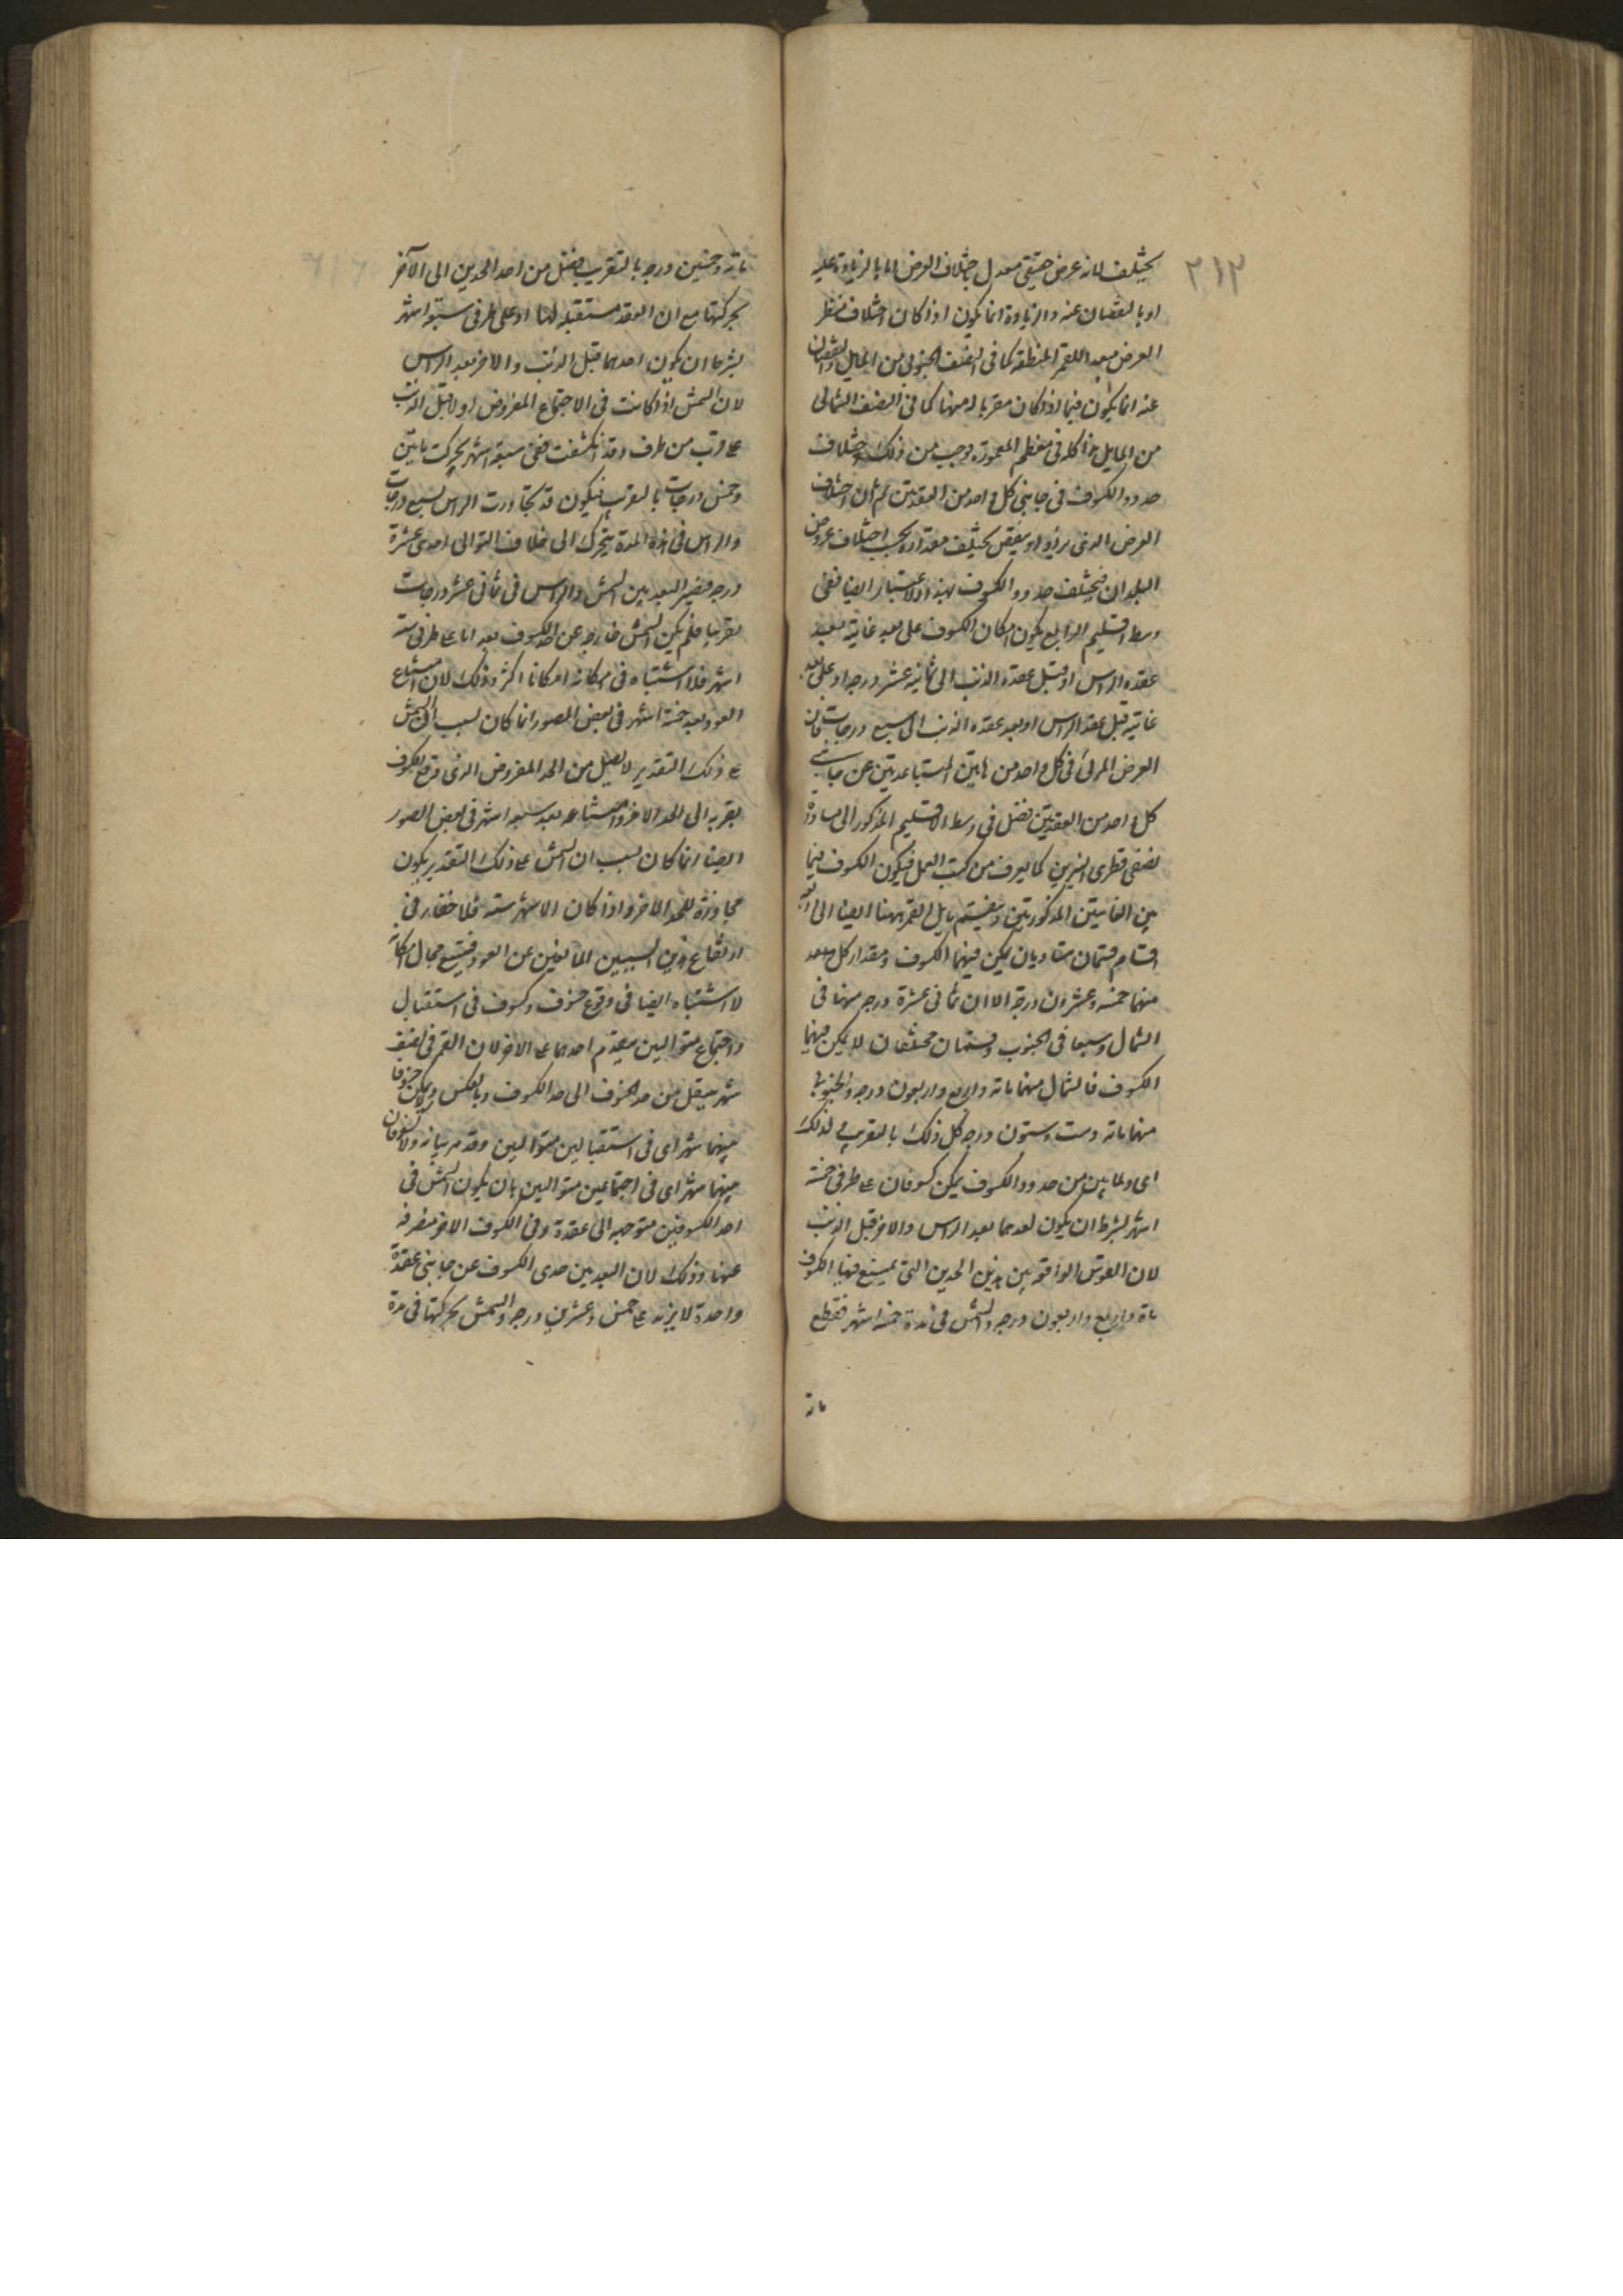 ٢١٢
يختلف لانه عرض حقيقى معدل باختلاف العرض اما بالزيادة عليه
او بالنقصان عنه والزيادة انما يكون اذا كان اختلاف منظر
العرض مبعدا للقمر عن المنطقة كما فى النصف الجنوبى من المايل والنقصان
عنه انما يكون فيما اذا كان مقربا له منها كما فى النصف الشمالى
من المايل هذا كله فى معظم المعمورة وجب من ذلك اختلاف
حدود الكسوف فى جانبى كل واحد من العقدتين ثم ان اختلاف
العرض الذى يزيد او ينقص يختلف مقداره بحسب اختلاف عروض
البلدان فيختلف حدود الكسوف بهذا الاعتبار ايضا ففى
وسط الاقليم الرابع يكون امكان الكسوف على بعد غايته بعد
عقدة الراس او قبل عقدة الذنب الى ثمانية عشر درجه او على بعد
غايته قبل عقدة الراس او بعد عقدة الذنب الى سبع درجات فان
العرض المرئى فى كل واحد من هاتين المتباعدتين عن جانبى
كل واحد من العقدتين تفضل فى وسط الاقليم المذكور الى مساواة
نصفى قطرى النيرين كما يعرف من كتب العمل فيكون الكسوف فيما
بين الغايتين المذكورتين وينقسم مايل القمر ههنا ايضا الى اربعة
اقسام قسمان متساويان يمكن فيهما الكسوف ومقدار كل بعد
منهما خمسة وعشرون درجة الا ان ثمانى عشرة درجه منها فى
الشمال وسبعا فى الجنوب وقسمان مختلفان لا يمكن فيهما
الكسوف فالشمالى منهما مائة واربع واربعون درجه والجنوبى
منهما مائة وست وستون درجه كل ذلك بالتقريب فلذلك
اى ولما بين من حدود الكسوف يمكن كسوفان على طرفى خمسة
اشهر بشرط ان يكون احدهما بعد الراس والاخر قبل الذنب
لان القوس الواقعة بين هذين الحدين التى يمتنع فيها الكسوف
مائة واربع واربعون درجه والشمس فى مدة خمسة اشهر فقطع
مائة
مائة وخمسين درجه بالتقريب فتصل من احد الحدين الى الآخر
بحركتها مع ان العقدة مستقبلة لها او على طرفى سبعة اشهر
بشرط ان يكون احدهما قبل الذنب والاخر بعد الراس
لان الشمس اذا كانت فى الاجتماع المفروض اولا قبل الذنب
على اقرب من طرف وقد انكشفت ففى سبعة اشهر تحركت مائتين
وخمس درجات بالتقريب فيكون قد تجاوزت الراس بسبع درجات
والراس فى هذه المدة يتحرك الى خلاف التوالى احدى عشرة
درجه فيصير البعد بين الشمس والراس ثمانى عشر درجات
تقريبا فلم يكن الشمس خارجه عن حد الكسوف بعد اما على طرفى ستة
اشهر فلا اشتباه فى امكانه امكانا اكثر وذلك لان امتناع
العود بعد خمسة اشهر فى بعض الصور انما كان لسبب ان الشمس
على ذلك التقدير لا تصل من الحد المفروض الذى وقع الكسوف
بقربه الى الحد الاخر وامتناعه بعد سبعة اشهر فى بعض الصور
ايضا انما كان بسبب ان الشمس على ذلك التقدير يكون
مجاوزة للحد الاخر واذا كان الاشهر ستة فلا خفاء فى
ارتفاع هذين السببين المانعين عن العود فيتسع مجال امكانه
لا اشتباه ايضا فى وقوع خسوف وكسوف فى استقبال
واجتماع متواليين يتقدم احدهما على الاخر لان القمر فى نصف
شهر ينتقل من حد الخسوف الى حد الكسوف وبالعكس ولا يمكن خسوفان
بينهما شهر اى فى استقبالين متواليين وقد مر بيانه ولا كسوفان
بينهما شهر اى فى اجتماعين متواليين بان يكون الشمس فى
احد الكسوفين متوجهه الى عقدة وفى الكسوف الاخر منصرفة
عنها وذلك لان البعد بين حدى الكسوف عن جانبى عقدة
واحدة لا يزيد على خمس وعشرين درجه والشمس بحركتها فى مدة